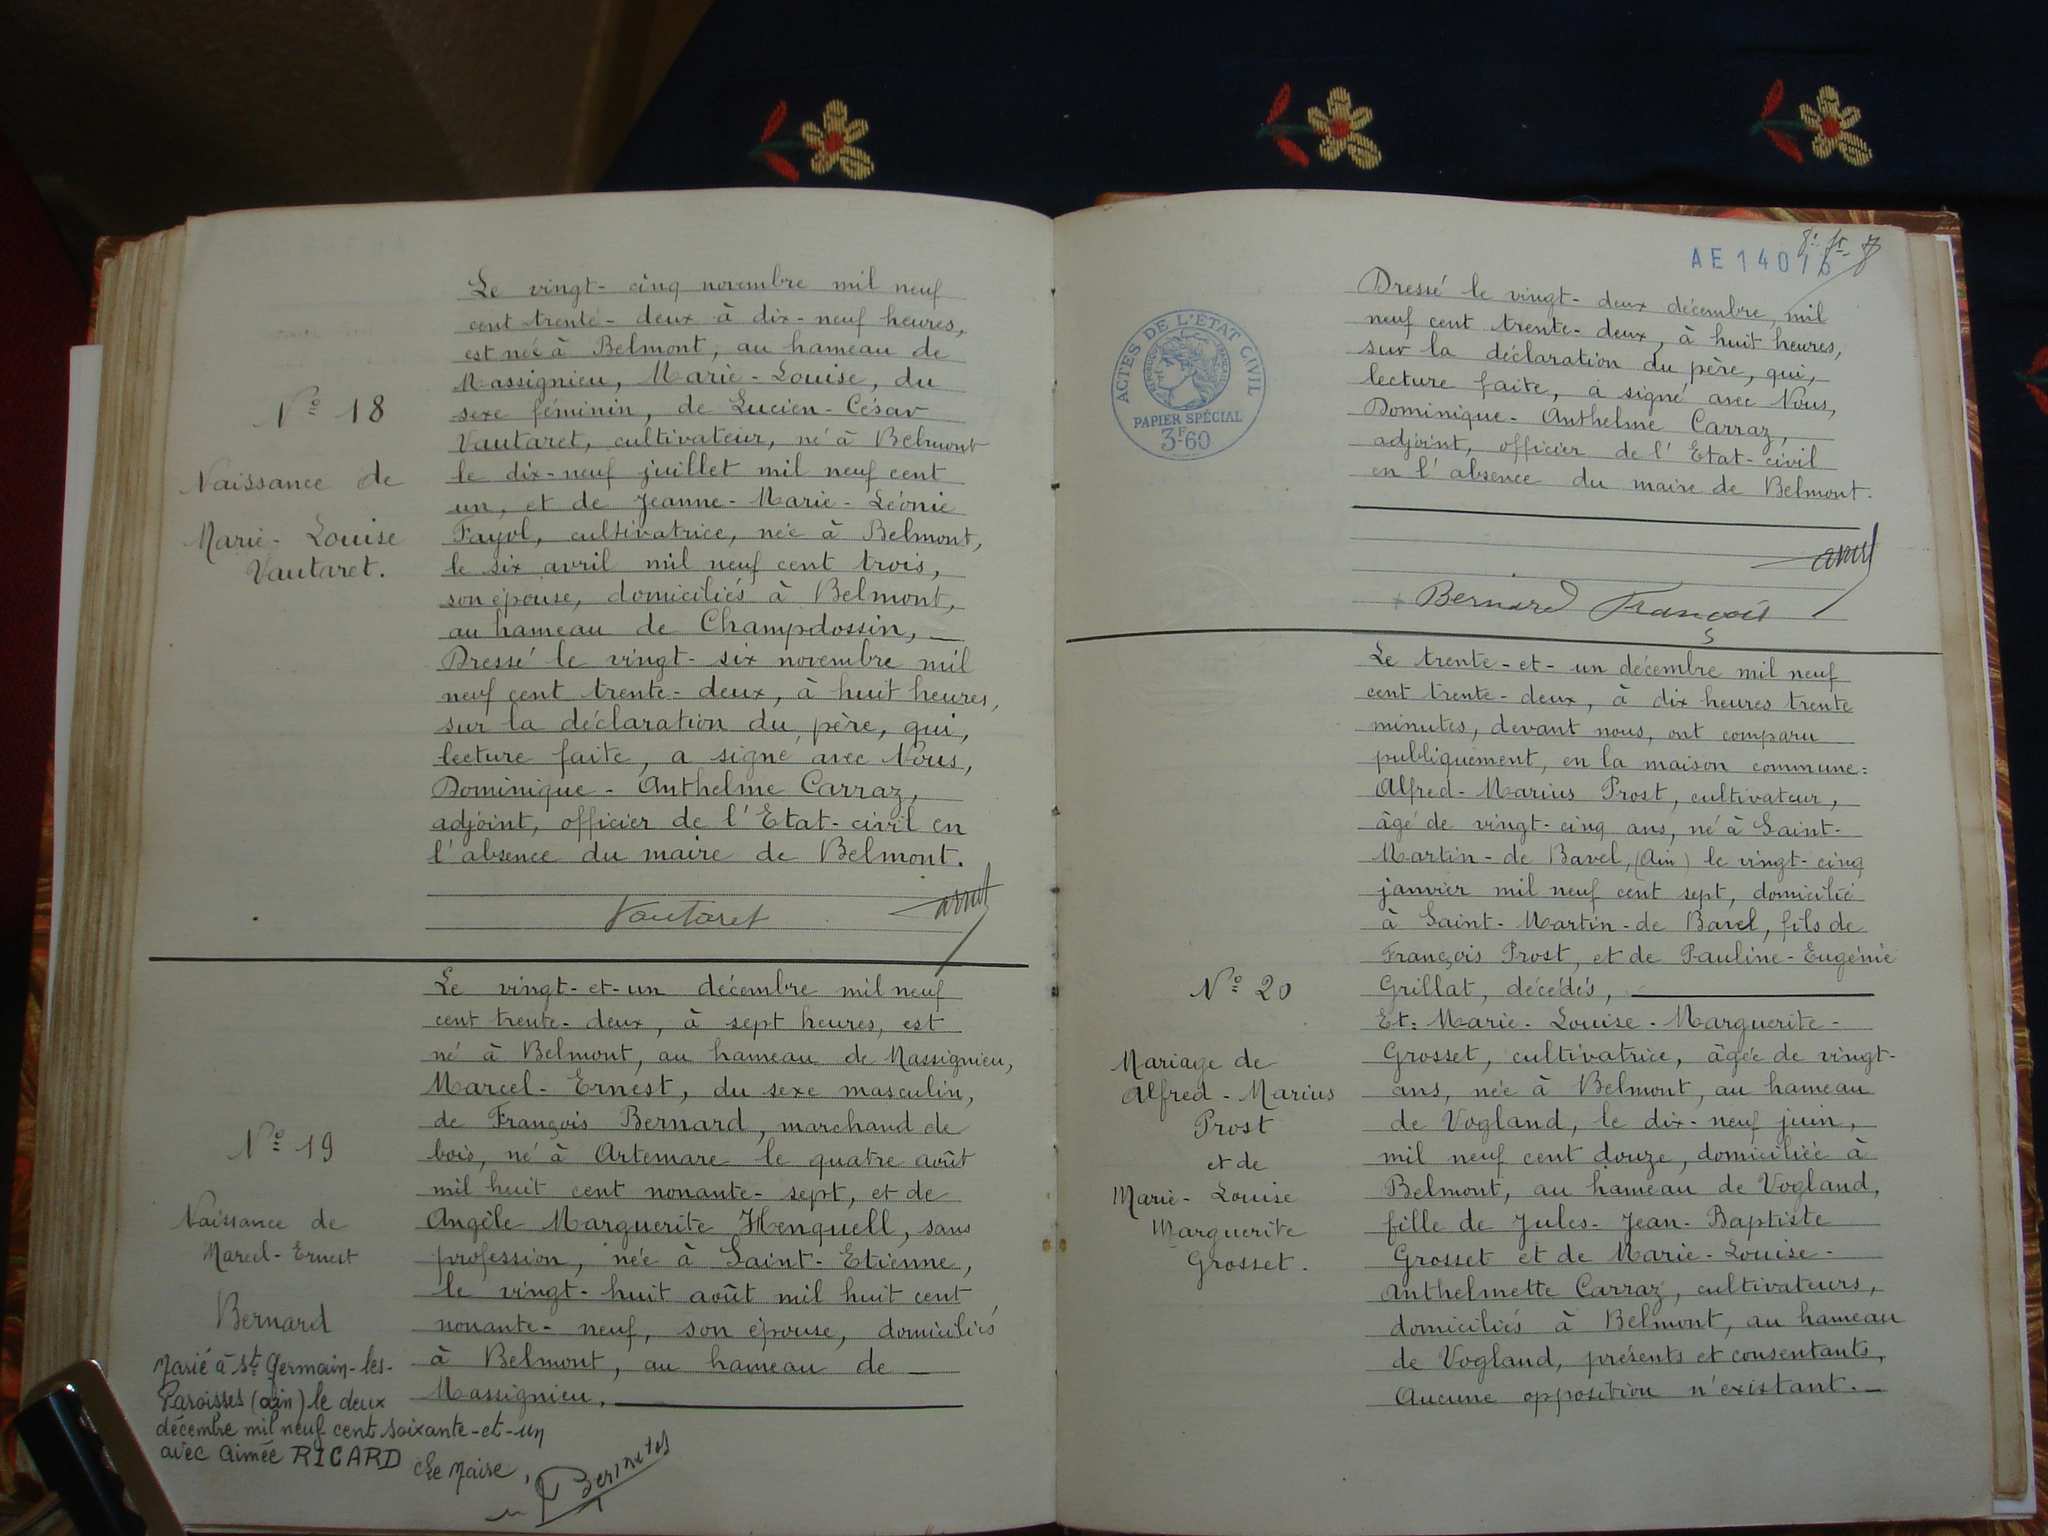 Le vingt-cinq novembre mil neuf
cent trente-deux à dix-neuf heures,
est née à Belmont, au hameau de
Massignieu, Marie-Louise, du
sexe féminin, de Lucien-César
Vautaret, cultivateur, né à Belmont
le dix-neuf juillet mil neuf cent
un, et de Jeanne-Marie-Léonie
Fayol, cultivatrice, née à Belmont,
le six avril mil neuf cent trois,
son épouse, domiciliés à Belmont,
au hameau de Champdossin,
Dressé le vingt-six novembre mil
neuf cent trente-deux, à huit heures,
sur la déclaration du père, qui,
lecture faite, a signé avec Nous,
Dominique-Anthelme Carraz,
adjoint, officier de l'Etat-civil en
l'absence du maire de Belmont.
Vautaret
N° 18
Naissance de
Marie-Louise
Vautaret.
Le vingt-et-un décembre mil neuf
cent trente-deux, à sept heures, est
né à Belmont, au hameau de Massignieu,
Marcel-Ernest, du sexe masculin,
de François Bernard, marchand de
bois, né à Artemare le quatre août
mil huit cent nonante-sept, et de
Angèle Marguerite Henquell, sans
profession, née à Saint-Etienne,
le vingt-huit août mil huit cent
nonante-neuf, son épouse, domiciliés
à Belmont, au hameau de
Massignieu,
N° 19
Naissance de
Marcel-Ernest
Bernard
Marié à St Germain-les-
Paroisses (ain) le deux
décembre mil neuf cent soixante-et-un
avec Aimée RICARD
Le Maire,
AE 14016
ACTES DE L'ETAT CIVIL
REPUBLIQUE FRANCAISE
PAPIER SPÉCIAL
3F60
Dressé le vingt-deux décembre, mil
neuf cent trente-deux, à huit heures,
sur la déclaration du père, qui,
lecture faite, a signé avec Nous,
Dominique-Anthelme Carraz,
adjoint, officier de l'Etat-civil
en l'absence du maire de Belmont.
Bernard François
Le trente-et-un décembre mil neuf
cent trente-deux, à dix heures trente
minutes, devant nous, ont comparu
publiquement, en la maison commune:
Alfred-Marius Prost, cultivateur,
âgé de vingt-cinq ans, né à Saint-
Martin-de Bavel, (Ain) le vingt-cinq
janvier mil neuf cent sept, domicilié
à Saint-Martin-de Bavel, fils de
François Prost, et de Pauline-Eugénie
Grillat, décédés,
Et: Marie-Louise-Marguerite-
Grosset, cultivatrice, âgée de vingt-
ans, née à Belmont, au hameau
de Vogland, le dix-neuf juin,
mil neuf cent douze, domiciliée à
Belmont, au hameau de Vogland,
fille de Jules-Jean-Baptiste
Grosset et de Marie-Louise-
Anthelmette Carraz, cultivateurs,
domiciliés à Belmont, au hameau
de Vogland, présents et consentants,
Aucune opposition n'existant.
N° 20
Mariage de
Alfred-Marius
Prost
et de
Marie-Louise
Marguerite
Grosset.